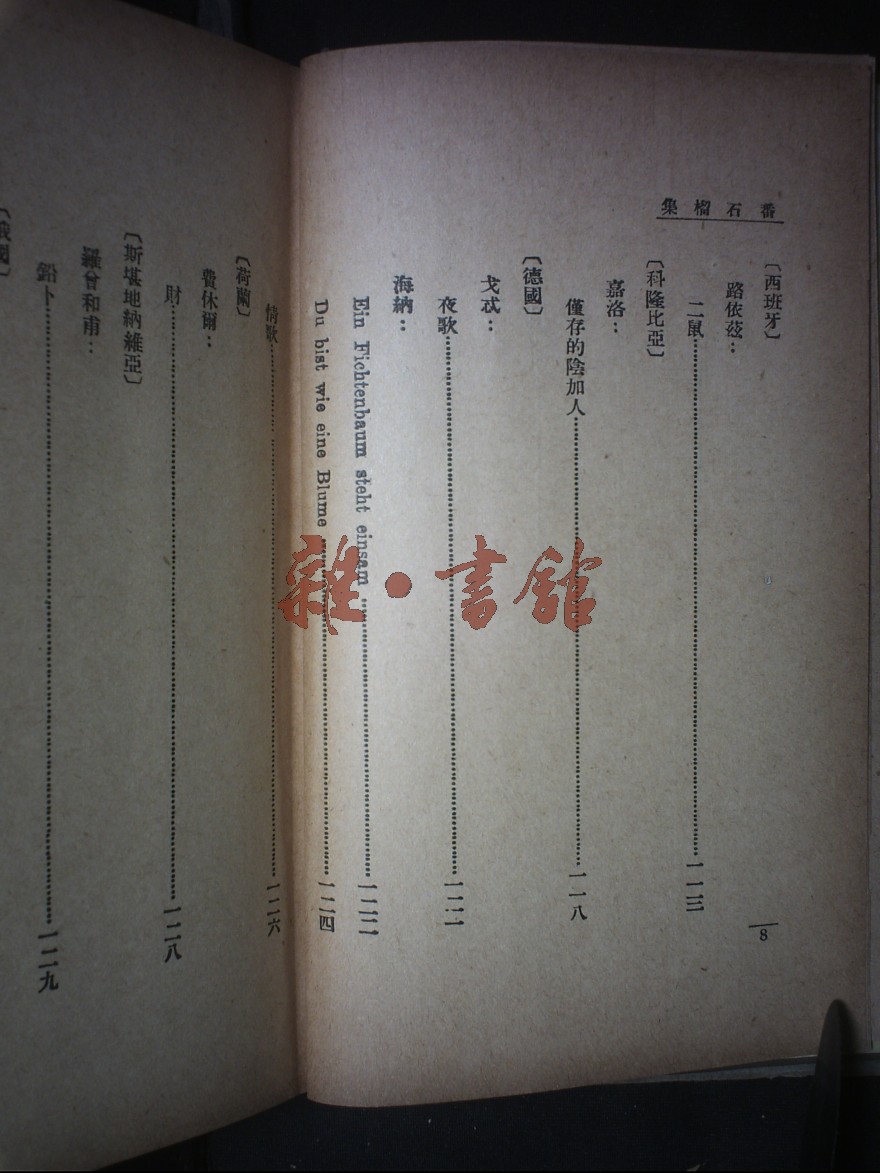 番石榴集
〔西班牙〕
路依茲：
二鼠……一一三
〔科隆比亞〕
嘉洛：
僅存的陰加人……一一八
〔德國〕
戈忒：
夜歌……一二二
海納：
Ein Fichtenbaum steht einsam……一二三
Du bist wie eine Blume……一二四
情歌……一二六
〔荷蘭〕
費休爾：
財……一二八
〔斯堪地納維亞〕
羅曾和甫：
鉛卜……一二九
〔俄國〕
8
雜·書館